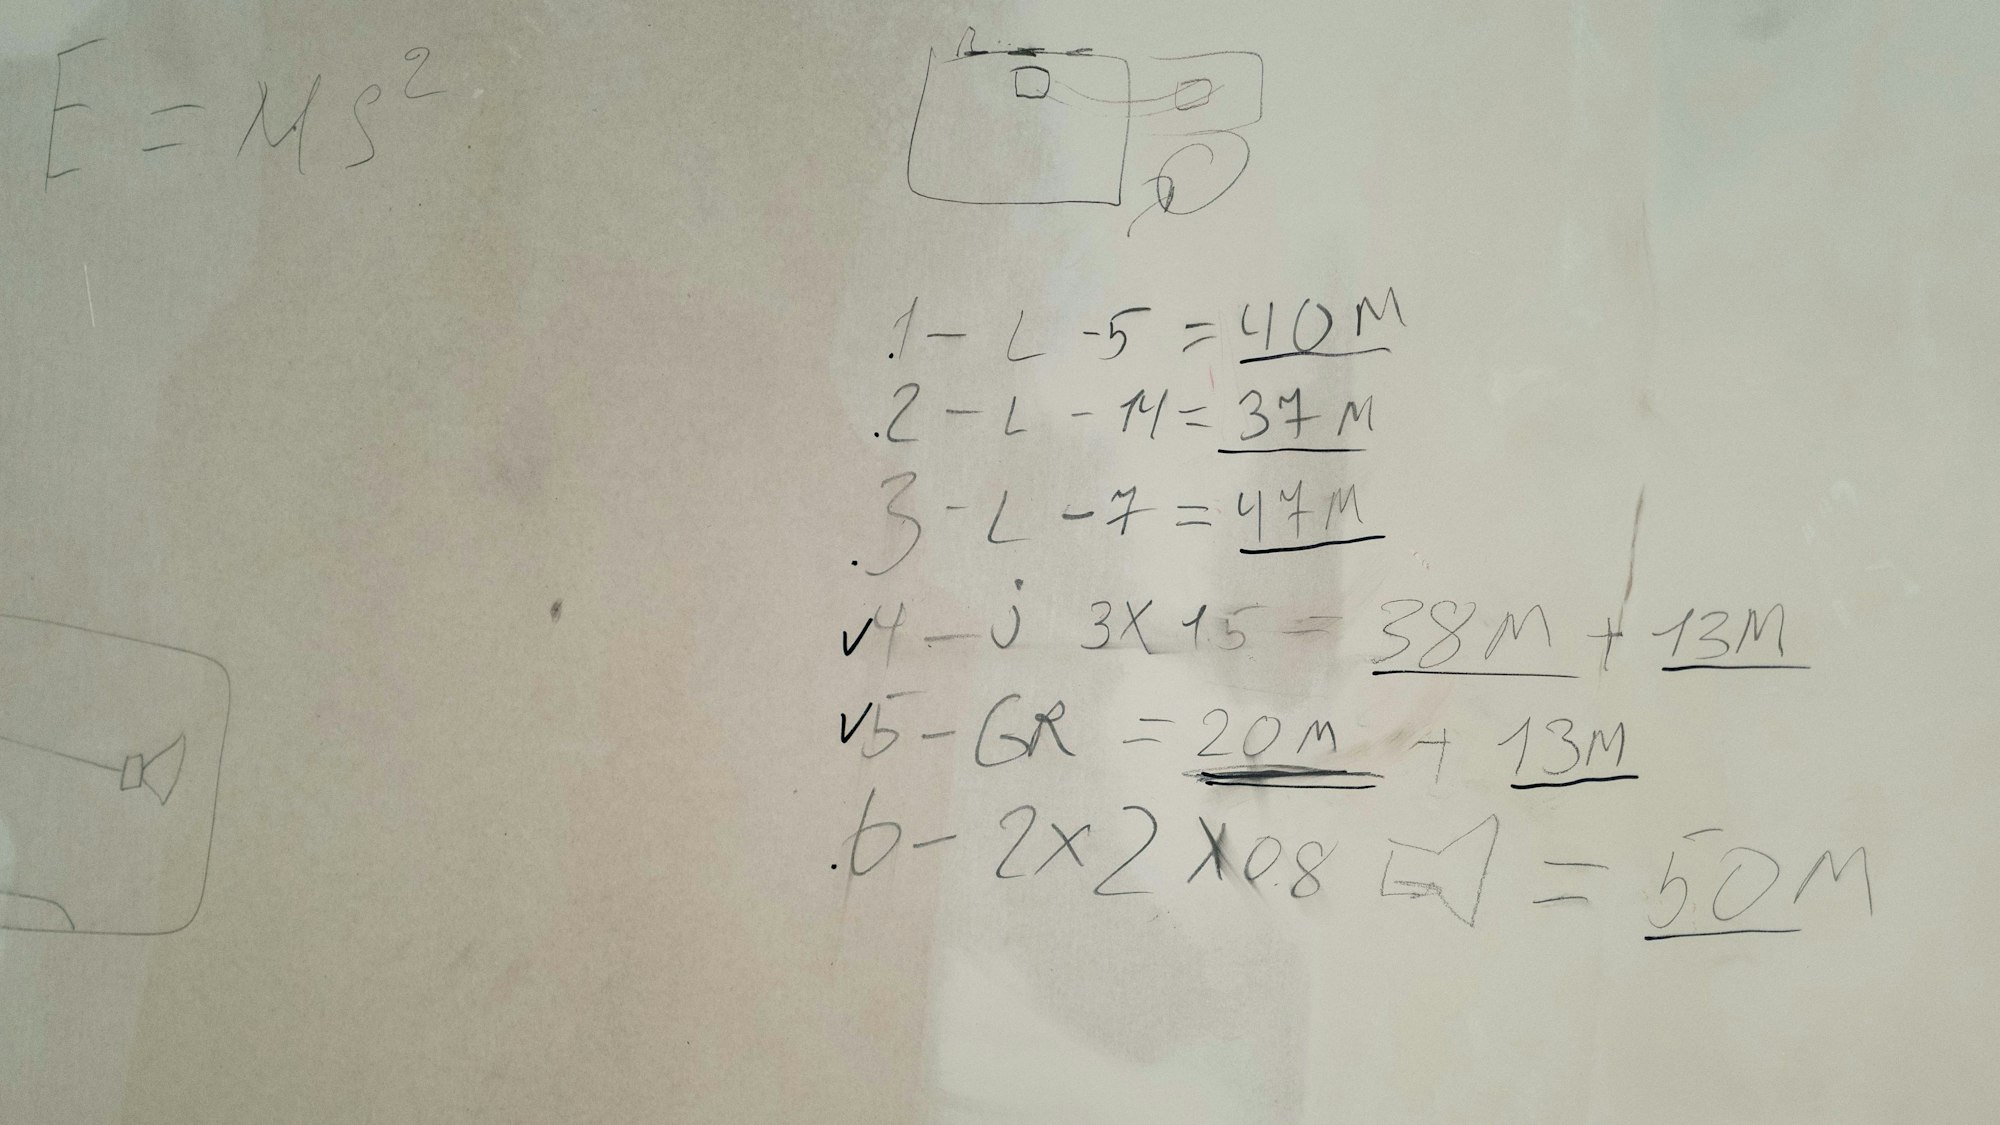 E = MS²
.1 - L -5 = 40M
.2 - L - 14 = 37M
.3 - L - 7 = 47M
✓4 - j 3X1.5 = 38M + 13M
✓5 - GR = 20M + 13M
.6 - 2X2X0.8 = 50M